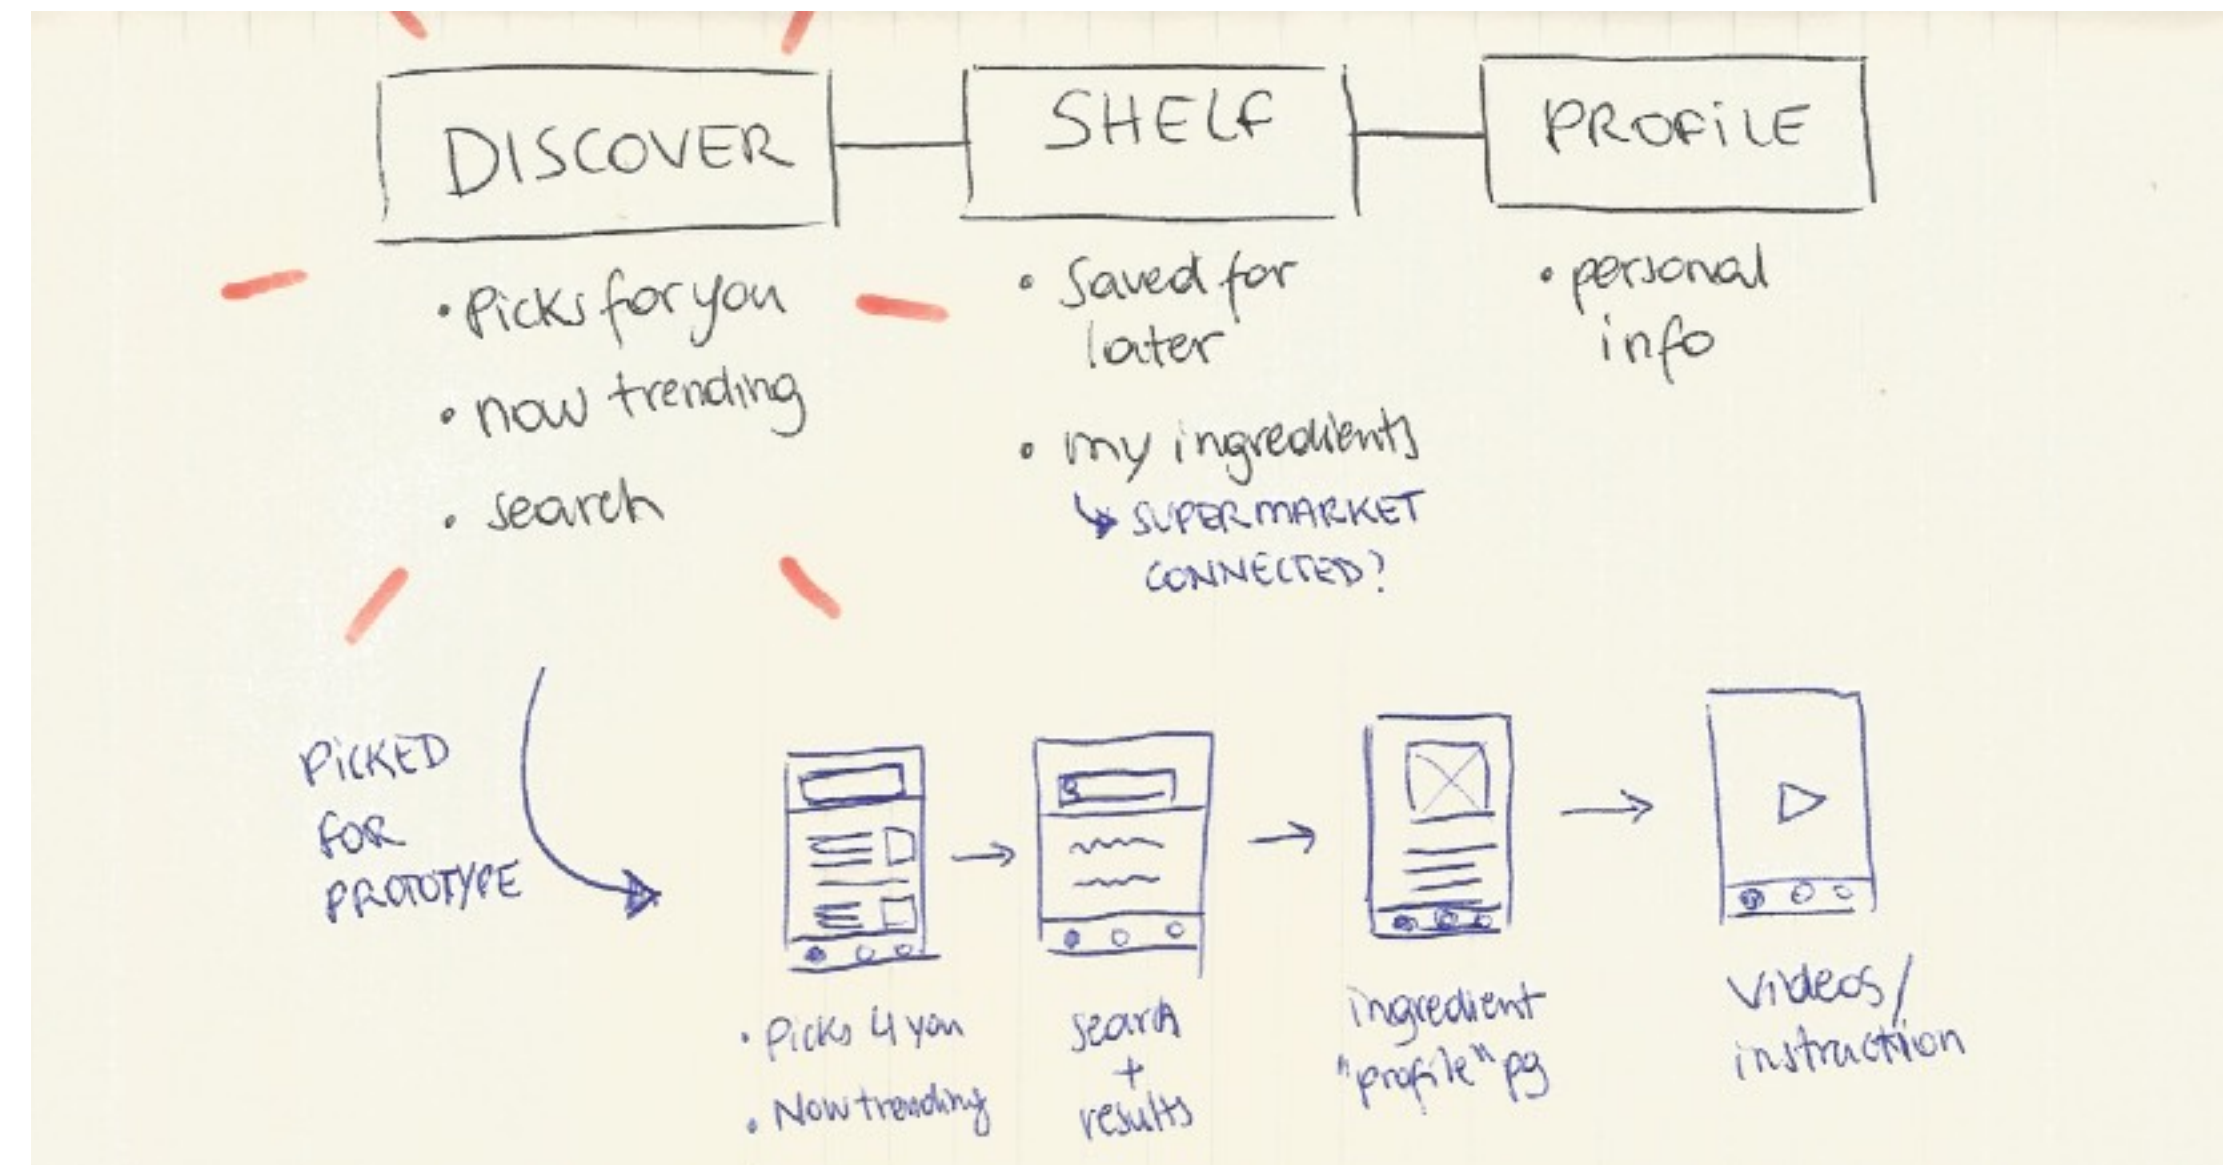 DISCOVER
SHELF
PROFILE
• Picks for you
• now trending
• search
• Saved for
later
• my ingredients
↳ SUPERMARKET
CONNECTED?
• personal
info
PICKED
FOR
PROTOTYPE
• Picks 4 you
• Now trending
search
+
results
ingredient
"profile" pg
Videos/
instruction